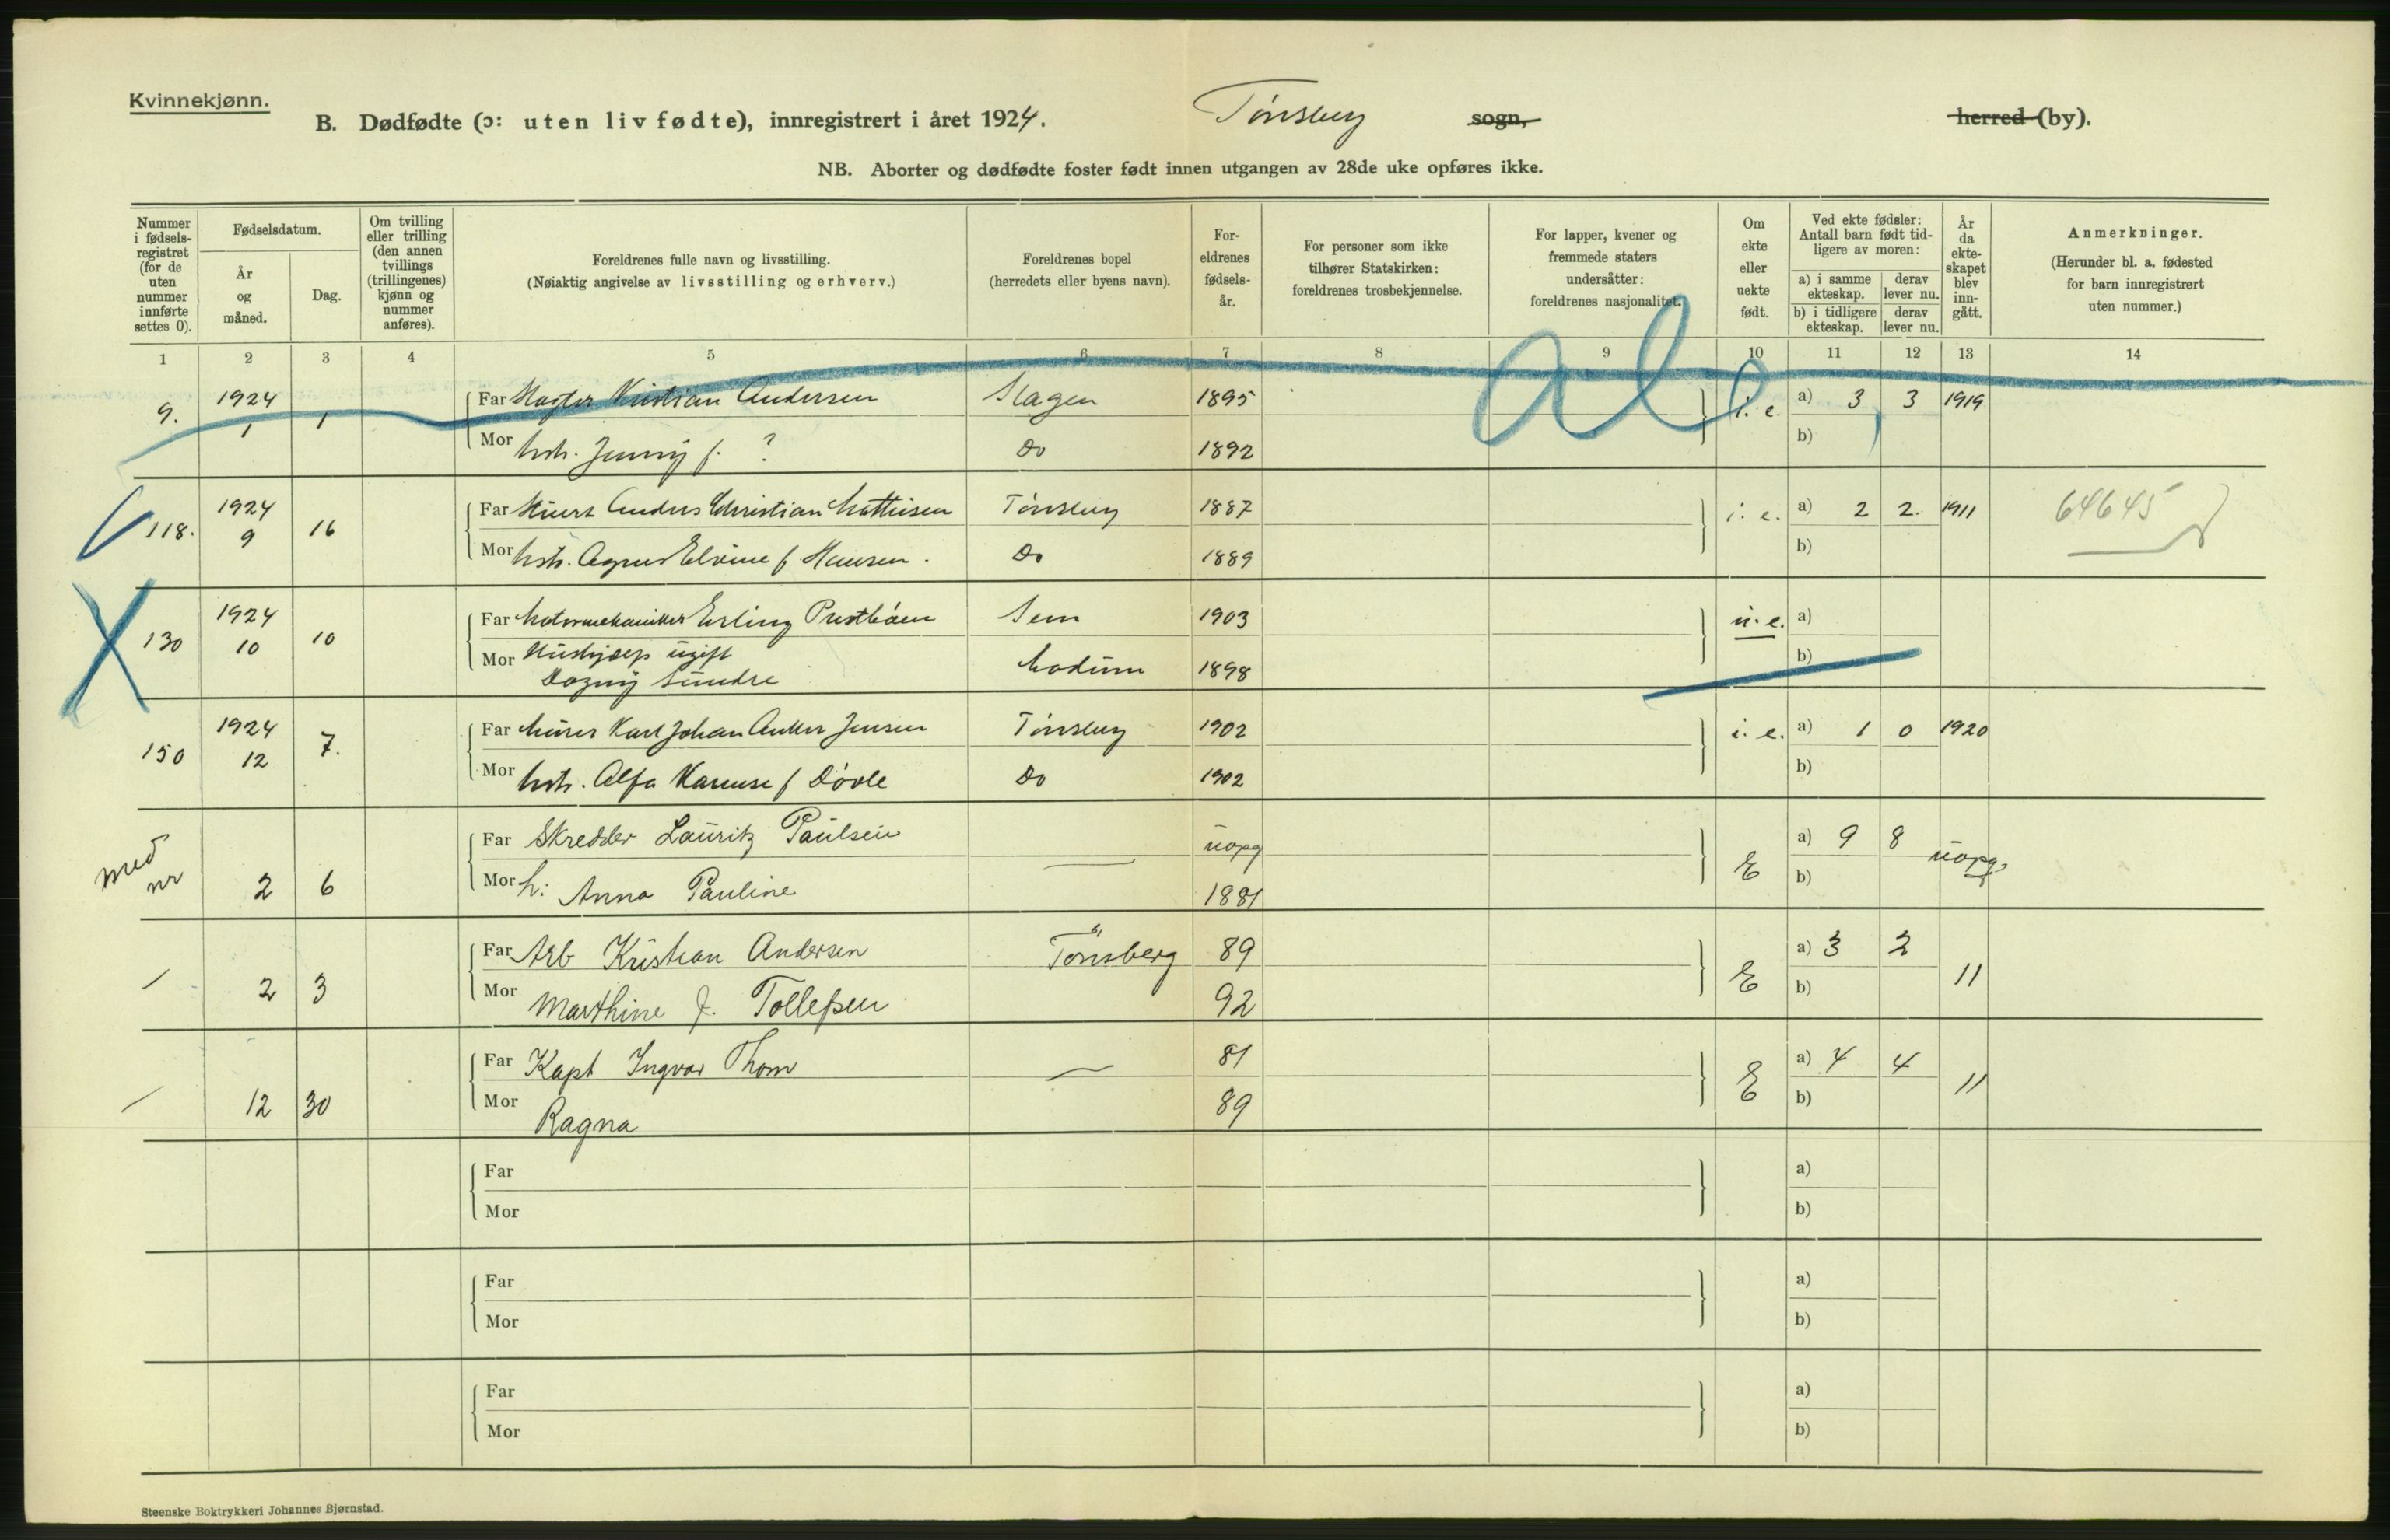 Kvinnekjønn.
B. Dødfødte (ɔ: uten liv fødte), innregistrert i året 1924. Tønsberg sogn, herred (by).
NB. Aborter og dødfødte foster født innen utgangen av 28de uke opføres ikke.
Nummer i fødsels- registret (for de uten nummer innførte settes 0).
Fødselsdatum.
År og måned.
Dag.
Om tvilling eller trilling (den annen tvillings (trillingenes) kjønn og nummer anføres).
Foreldrenes fulle navn og livsstilling.
(Nøiaktig angivelse av livsstilling og erhverv.)
Foreldrenes bopel
(herredets eller byens navn).
For- eldrenes fødsels- år.
For personer som ikke tilhører Statskirken: foreldrenes trosbekjennelse.
For lapper, kvener og fremmede staters undersåtter: foreldrenes nasjonalitet.
Om ekte eller uekte født.
Ved ekte fødsler: Antall barn født tid- ligere av moren:
a) i samme ekteskap. derav lever nu.
b) i tidligere ekteskap. derav lever nu.
År da ekte- skapet blev inn- gått.
Anmerkninger.
(Herunder bl. a. fødested for barn innregistrert uten nummer.)
1 2 3 4 5 6 7 8 9 10 11 12 13 14
9. 1924 1 1 Far Kristian Andersen Slagen 1895 i. e. a) 3 3 1919
Mor hstr. Jenny f. ? Do 1892 b)
al
118. 1924 9 16 Far Anders Christian Mathisen Tønsberg 1887 i. e. a) 2 2. 1911 64645
Mor hstr. Agnes Elvine f Hansen. Do 1889 b)
130 1924 10 10 Far Motormekaniker Erling Prestbøen Sem 1903 u. e. a)
Mor Hushjælp ugift Modum 1898 b)
Dagny Sundre
150 1924 12 7. Far Murer Karl Johan Anker Jensen Tønsberg 1902 i. e. a) 1 0 1920
Mor hstr. Alfa Karense f Døvle Do 1902 b)
med nr 2 6 Far Skredder Lauritz Paulsen — uopg E a) 9 8 uopg.
Mor h: Anna Pauline 1881 b)
/ 2 3 Far Arb Kristian Andersen Tønsberg 89 E a) 3 2 11
Mor Marthine f. Tollefsen 92 b)
/ 12 30 Far Kapt Ingvar Thom — 81 E a) 4 4 11
Mor Ragna 89 b)
Far a)
Mor b)
Far a)
Mor b)
Far a)
Mor b)
Steenske Boktrykkeri Johannes Bjørnstad.